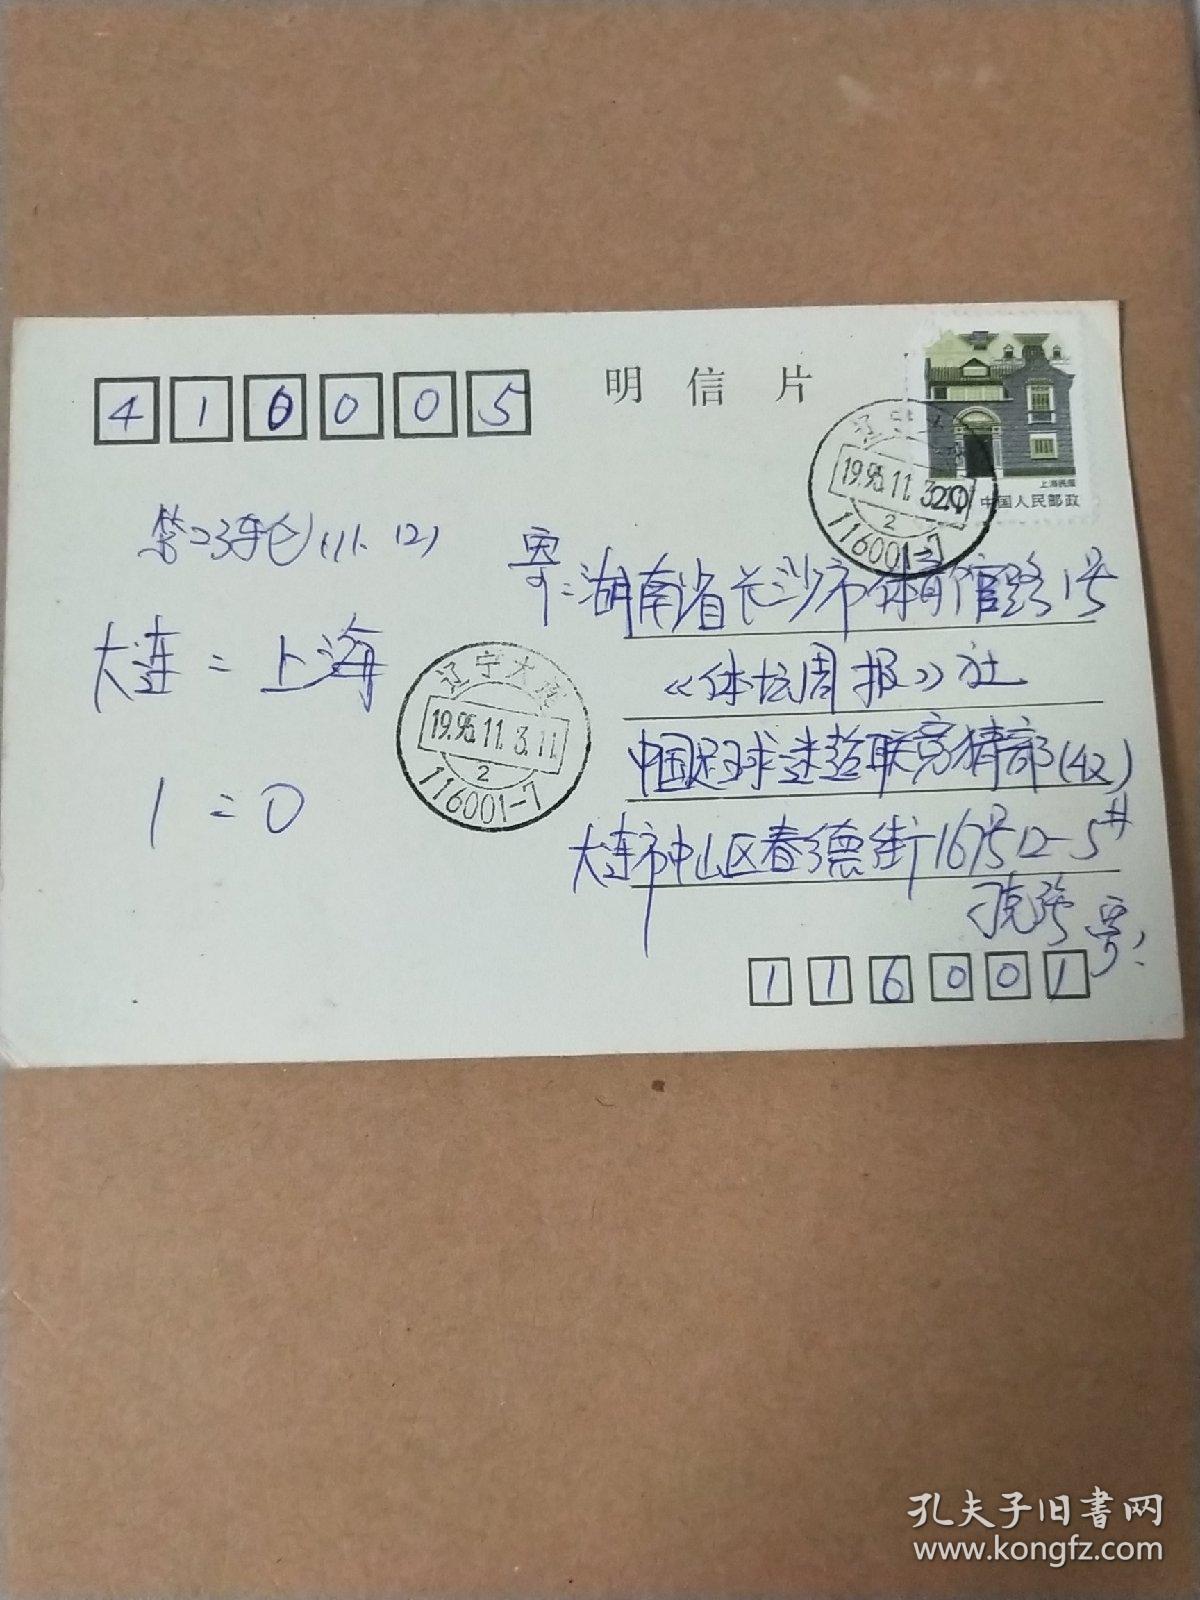 明信片
410005
上海民居
20 中国人民邮政
辽宁大连
19.95.11.3.11
2
116001-7
第23轮(11.12)
大连:上海
1:0
寄:湖南省长沙市体育馆路1号
《体坛周报》社
中国足球迷超联竞猜部(收)
大连市中山区春德街167号12-5#
寄
116001
辽宁大连
19.95.11.3.11
2
116001-7
孔夫子旧书网
www.kongfz.com